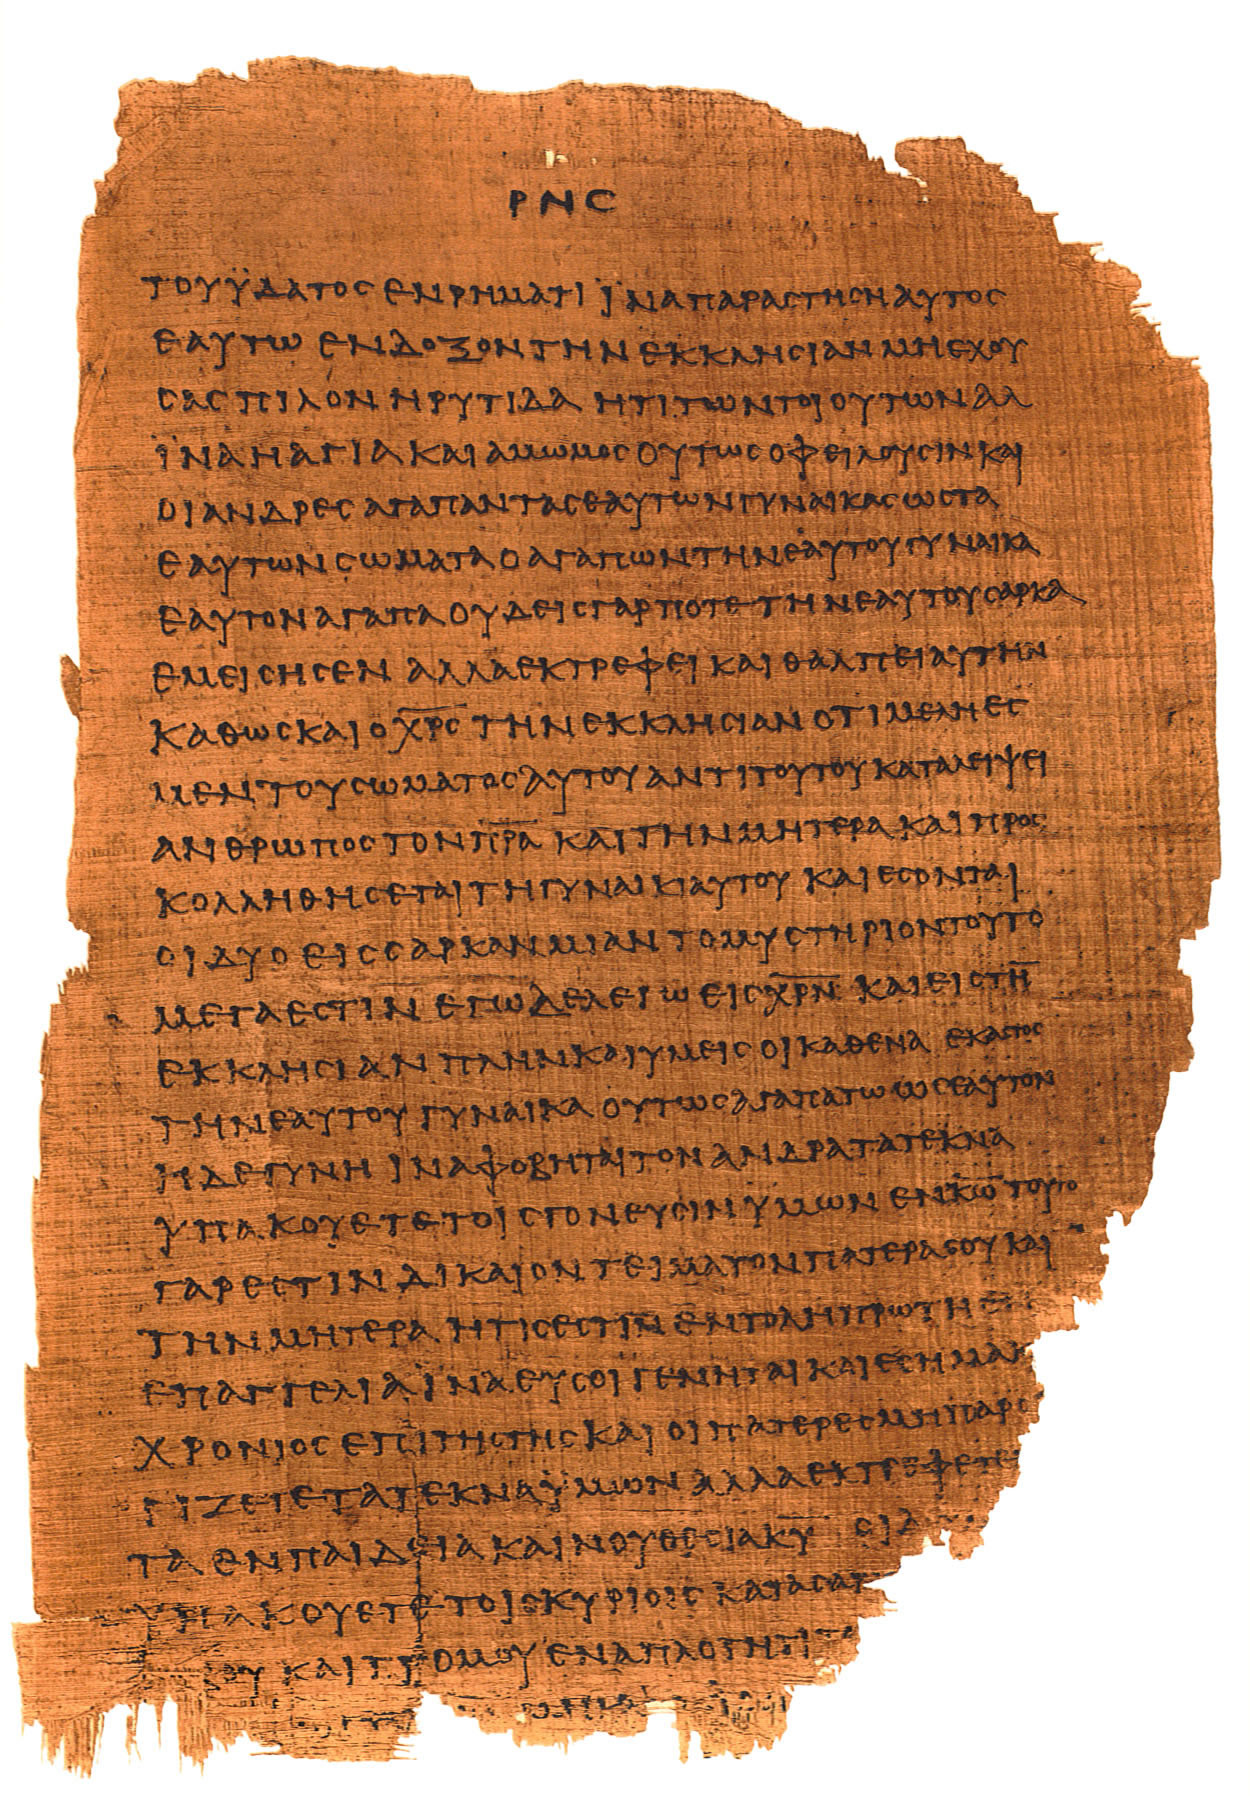 ΡΝϚ
ΤΟΥΫΔΑΤΟϹ ΕΝΡΗΜΑΤΙ ΪΝΑΠΑΡΑϹΤΗϹΗΑΥΤΟϹ
ΕΑΥΤΩ ΕΝΔΟΞΟΝΤΗΝ ΕΚΚΛΗϹΙΑΝ ΜΗΕΧΟΥ
ϹΑϹΠΙΛΟΝ ΗΡΥΤΙΔΑ ΗΤΙΤΩΝΤΟΙΟΥΤΩΝ ΑΛ
ΪΝΑΗΑΓΙΑΚΑΙ ΑΜΩΜΟϹ ΟΥΤΩϹ ΟΦΕΙΛΟΥϹΙΝ ΚΑΙ
ΟΙΑΝΔΡΕϹ ΑΓΑΠΑΝΤΑϹΕΑΥΤΩΝΓΥΝΑΙΚΑϹ ΩϹΤΑ
ΕΑΥΤΩΝϹΩΜΑΤΑ ΟΑΓΑΠΩΝΤΗΝΕΑΥΤΟΥΓΥΝΑΙΚΑ
ΕΑΥΤΟΝΑΓΑΠΑ ΟΥΔΕΙϹΓΑΡΠΟΤΕΤΗΝΕΑΥΤΟΥϹΑΡΚΑ
ΕΜΕΙϹΗϹΕΝ ΑΛΛΑΕΚΤΡΕΦΕΙ ΚΑΙ ΘΑΛΠΕΙΑΥΤΗΝ
ΚΑΘΩϹΚΑΙΟ Χ̅Ρ̅Ϲ̅ ΤΗΝΕΚΚΛΗϹΙΑΝ ΟΤΙΜΕΛΗΕϹ
ΜΕΝΤΟΥϹΩΜΑΤΟϹΑΥΤΟΥ ΑΝΤΙΤΟΥΤΟΥΚΑΤΑΛΕΙΨΕΙ
ΑΝΘΡΩΠΟϹΤΟΝΠ̅Ρ̅Α̅ ΚΑΙΤΗΝΜΗΤΕΡΑ ΚΑΙΠΡΟϹ
ΚΟΛΛΗΘΗϹΕΤΑΙΤΗΓΥΝΑΙΚΙΑΥΤΟΥ ΚΑΙΕϹΟΝΤΑΙ
ΟΙΔΥΟ ΕΙϹϹΑΡΚΑΝΜΙΑΝ ΤΟΜΥϹΤΗΡΙΟΝΤΟΥΤΟ
ΜΕΓΑΕϹΤΙΝ ΕΓΩΔΕΛΕΓΩ ΕΙϹΧ̅Ρ̅Ν̅ ΚΑΙΕΙϹΤΗ̅
ΕΚΚΛΗϹΙΑΝ ΠΛΗΝΚΑΙΥΜΕΙϹ ΟΙΚΑΘΕΝΑ ΕΚΑϹΤΟϹ
ΤΗΝΕΑΥΤΟΥ ΓΥΝΑΙΚΑ ΟΥΤΩϹΑΓΑΠΑΤΩ ΩϹΕΑΥΤΟΝ
ΗΔΕΓΥΝΗ ΙΝΑΦΟΒΗΤΑΙΤΟΝΑΝΔΡΑ ΤΑΤΕΚΝΑ
ΥΠΑΚΟΥΕΤΕΤΟΙϹΓΟΝΕΥϹΙΝΥΜΩΝ ΕΝΚ̅Ω̅ ΤΟΥΤΟ
ΓΑΡΕϹΤΙΝ ΔΙΚΑΙΟΝ ΤΕΙΜΑΤΟΝΠΑΤΕΡΑϹΟΥ ΚΑΙ
ΤΗΝΜΗΤΕΡΑ ΗΤΙϹΕϹΤΙΝ ΕΝΤΟΛΗΠΡΩΤΗ
ΕΠΑΓΓΕΛΙΑ ΪΝΑΕΥϹΟΙΓΕΝΗΤΑΙ ΚΑΙΕϹΗΜΑΚ
ΧΡΟΝΙΟϹ ΕΠΙΤΗϹΓΗϹ ΚΑΙ ΟΙΠΑΤΕΡΕϹΜΗΠΑΡΟ
ΓΙΖΕΙΕΤΑΙΕΚΝΑΫΜΩΝ ΑΛΛΑΕΚΤΡΕΦΕΤΕ
ΤΑ ΕΝΠΑΙΔΕΙΑ ΚΑΙΝΟΥΘΕϹΙΑΚ̅Υ̅
ΥΠΑΚΟΥΕΤΕΤΟΙϹΚΥΡΙΟΙϹ ΚΑΤΑϹΑΡ
ΒΟΥ ΚΑΙΤΡΟΜΟΥ ΕΝΑΠΛΟΤΗΤΙ